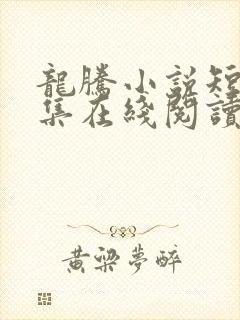 龍騰小說短
集在綫閱讀
黃梁夢醉